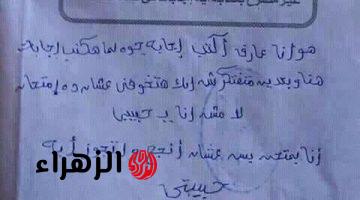 هو انا عارف اكتب إجابه جوه لما هكتب إجابات
هنا وبعدين متفتكرش إنك هتخوفني عشان ده إمتحان
لا مش انا يا حبيبي
أنا بمتحن بس عشان أنجح و اتجوز أيه
حبيبتي
الزهراء